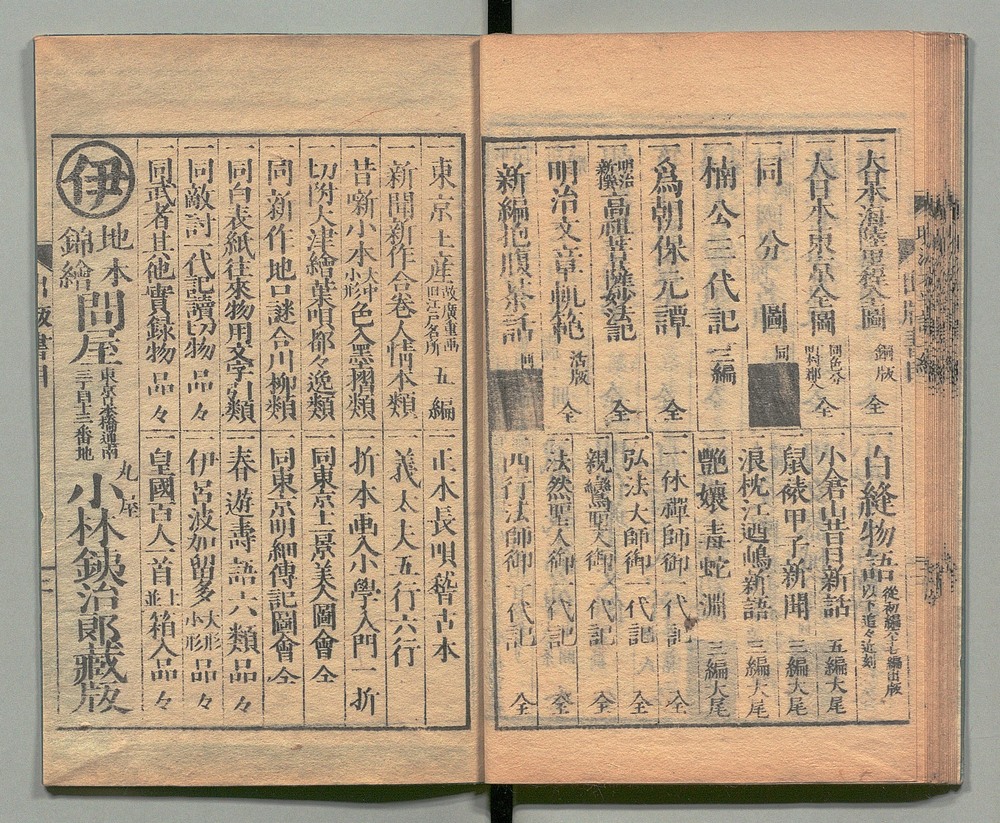 一大日本海陸里程全圖 銅版 全
一大日本東京全圖 同色分 明細郡入 全
一同 國分圖 同
一楠公三代記 三編
一爲朝保元譚 全
一明治新撰高祖菩薩妙法記 全
一明治文章軌範 活版 全
一新編抱腹茶話 同
一白縫物語 從初編至七編出版 以下追々近刻
一小倉山昔日新話 五編大尾
一鼠祷甲子新聞 三編大尾
一浪枕江遊嶋新語 三編大尾
一艷孃毒蛇淵 三編大尾
一一休禪師御一代記 全
一弘法大師御一代記 全
一親鸞聖人御一代記 全
一法然聖人御一代記 全
一西行法師御一代記 全
一東京土産 故廣重画 旧江戸名所 五編
一新聞新作合卷人情本類
一昔噺小本 大中小形 色入墨摺類
一切附大津繪葉唄都々逸類
一同新作地口謎合川柳類
一同白表紙往來物用文字引類
一同敵討一代記讀切物 品々
一同武者其他實録物 品々
一正本長唄稽古本
一義太夫五行六行
一折本画入小學入門 一折
一同東京十景美人圖會 全
一同東京明細傳記圖會 全
一春遊壽語六類品々
一伊呂波加留多 大形小形 品々
一皇國百人一首 並上 箱入品々
伊
地本錦繪問屋
東京日本橋通南三丁目十三番地
丸屋
小林鉄治郎藏版